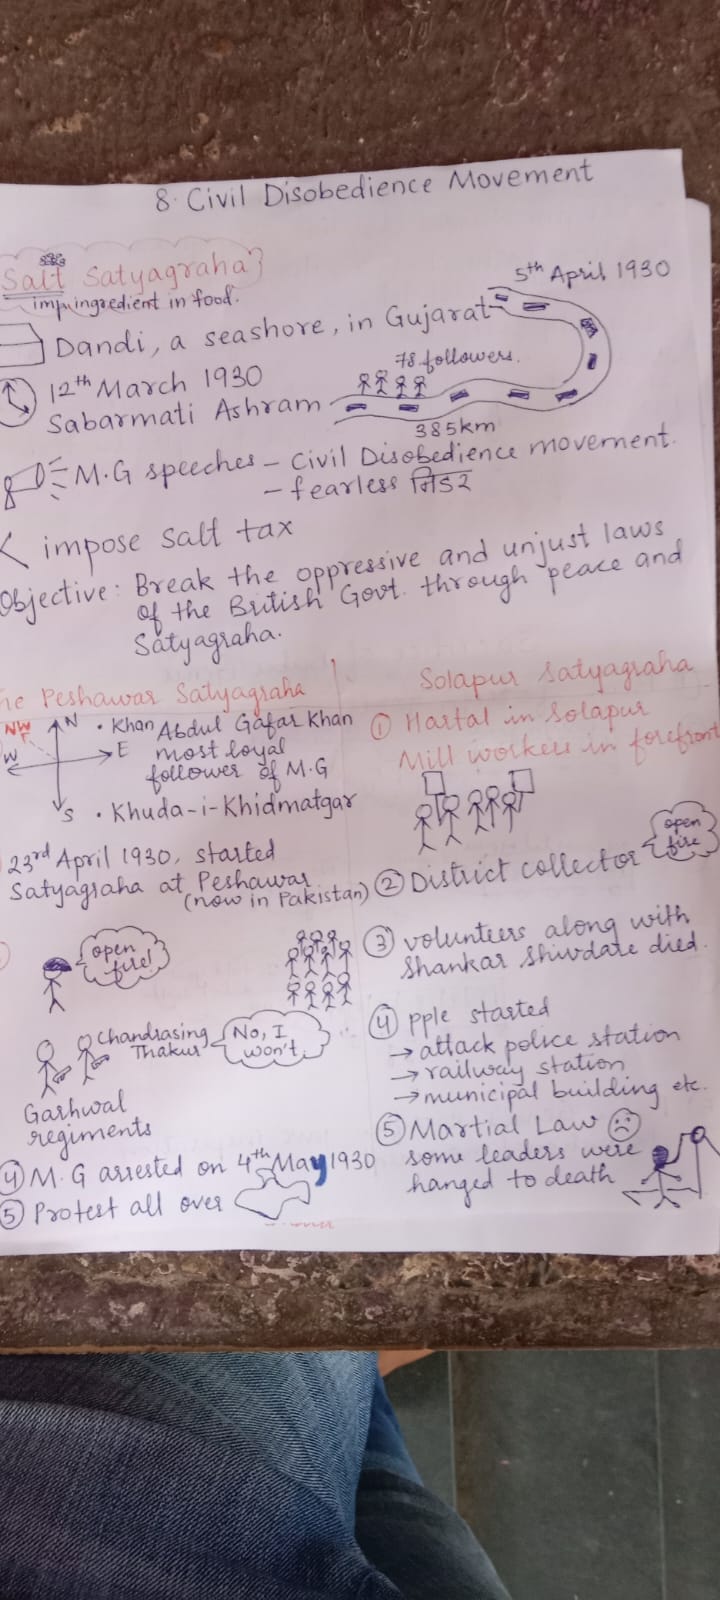 8. Civil Disobedience Movement
Salt Satyagraha
imp. ingredient in food.
5th April 1930
Dandi, a seashore, in Gujarat
78 followers.
12th March 1930
Sabarmati Ashram
385km
M.G speeches - Civil Disobedience movement.
- fearless निडर
impose salt tax
Objective: Break the oppressive and unjust laws
of the British Govt. through peace and
Satyagraha.
The Peshawar Satyagraha
NW
N
W
E
S
• Khan Abdul Gafar Khan
most loyal
follower of M.G
• Khuda-i-Khidmatgar
23rd April 1930, started
Satyagraha at Peshawar
(now in Pakistan)
open
fire!
Chandrasing
Thakur
No, I
won't
Garhwal
regiments
④ M.G arrested on 4th May 1930
⑤ Protest all over
Solapur Satyagraha
① Hartal in Solapur
Mill workers in forefront
② District collector
open
fire
③ volunteers along with
Shankar Shivdare died.
④ pple started
→ attack police station
→ railway station
→ municipal building etc.
⑤ Martial Law
some leaders were
hanged to death